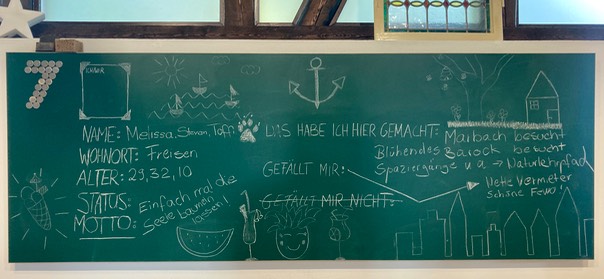 7
NAME: Melissa, Steven, Toffi
WOHNORT: Freisen
ALTER: 29, 32, 10
STATUS:
MOTTO: Einfach mal die
Seele baumeln
lassen!
WAS HABE ICH HIER GEMACHT: Marbach besucht
Blühendes Barock besucht
Spaziergänge u.a → Naturlehrpfad
GEFÄLLT MIR:
Nette Vermieter
Schöne Fewo!
GEFÄLLT MIR NICHT: